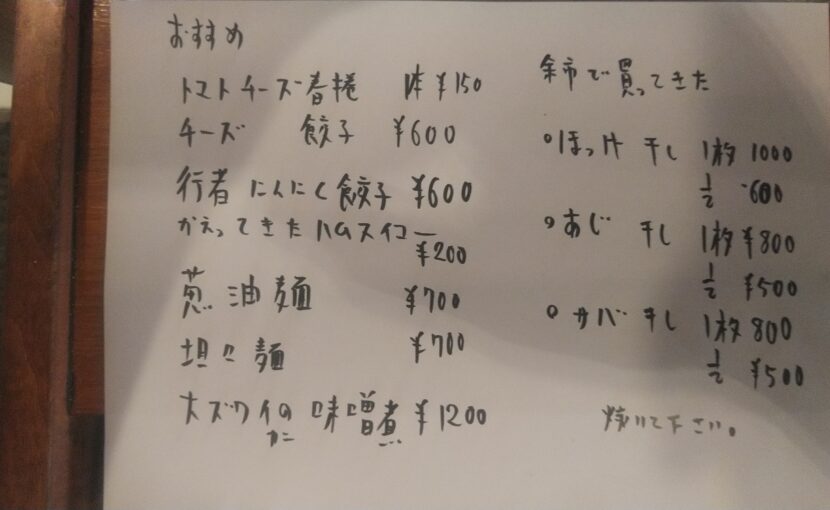 おすすめ
トマトチーズ春捲 1本 ¥150
チーズ 餃子 ¥600
行者にんにく餃子 ¥600
かえってきたハムスイコー
¥200
葱油麺 ¥700
坦々麺 ¥700
大ズワイの味噌煮 ¥1200
カニ
余市で買ってきた
°ほっけ 干し 1枚 1000
1/2 ¥600
°あじ 干し 1枚 ¥800
1/2 ¥500
°サバ干し 1枚 800
1/2 ¥500
焼いて下さい。